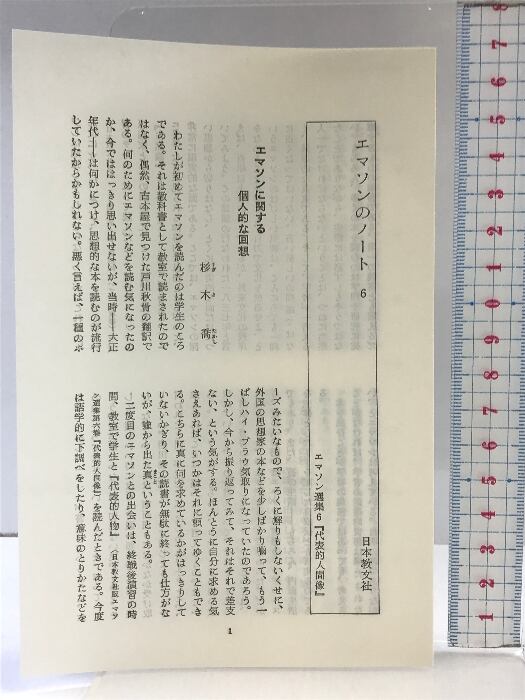 エマソンのノート 6
日本教文社
エマソン選集6『代表的人間像』
エマソンに関する
個人的な回想
杉木喬
すぎ き たかし
わたしが初めてエマソンを読んだのは学生のころ
である。それは教科書として教室で読まされたので
はなく、偶然、古本屋で見つけた戸川秋骨の飜訳で
ある。何のためにエマソンなどを読む気になったの
か、今でははっきり思い出せないが、当時――大正
年代――は何かにつけ、思想的な本を読むのが流行
していたからかもしれない。悪く言えば、一種のポ
ーズみたいなもので、ろくに解りもしないくせに、
外国の思想家の本などを少しばかり齧って、もう一
ぱしハイ・ブラウ気取りになっていたのであろう。
しかし、今から振り返ってみて、それはそれで差支
ない、という気がする。ほんとうに自分に求める気
さえあれば、いつかはそれに頼ってゆくこともでき
る。こちらに真に何を求めているかがはっきりして
いないかぎり、その読書が無駄に終っても仕方がな
いが、嘘から出た真ということもある。
まこと
二度目のエマソンとの出会いは、終戦後演習の時
間、教室で学生と『代表的人物』(日本教文社版エマソ
ン選集第六巻『代表的人間像』)を読んだときである。今度
は語学的に下調べをしたり、意味のとりかたなどを
1
8
7
6
5
4
3
2
1
0
9
8
7
6
5
4
3
2
1